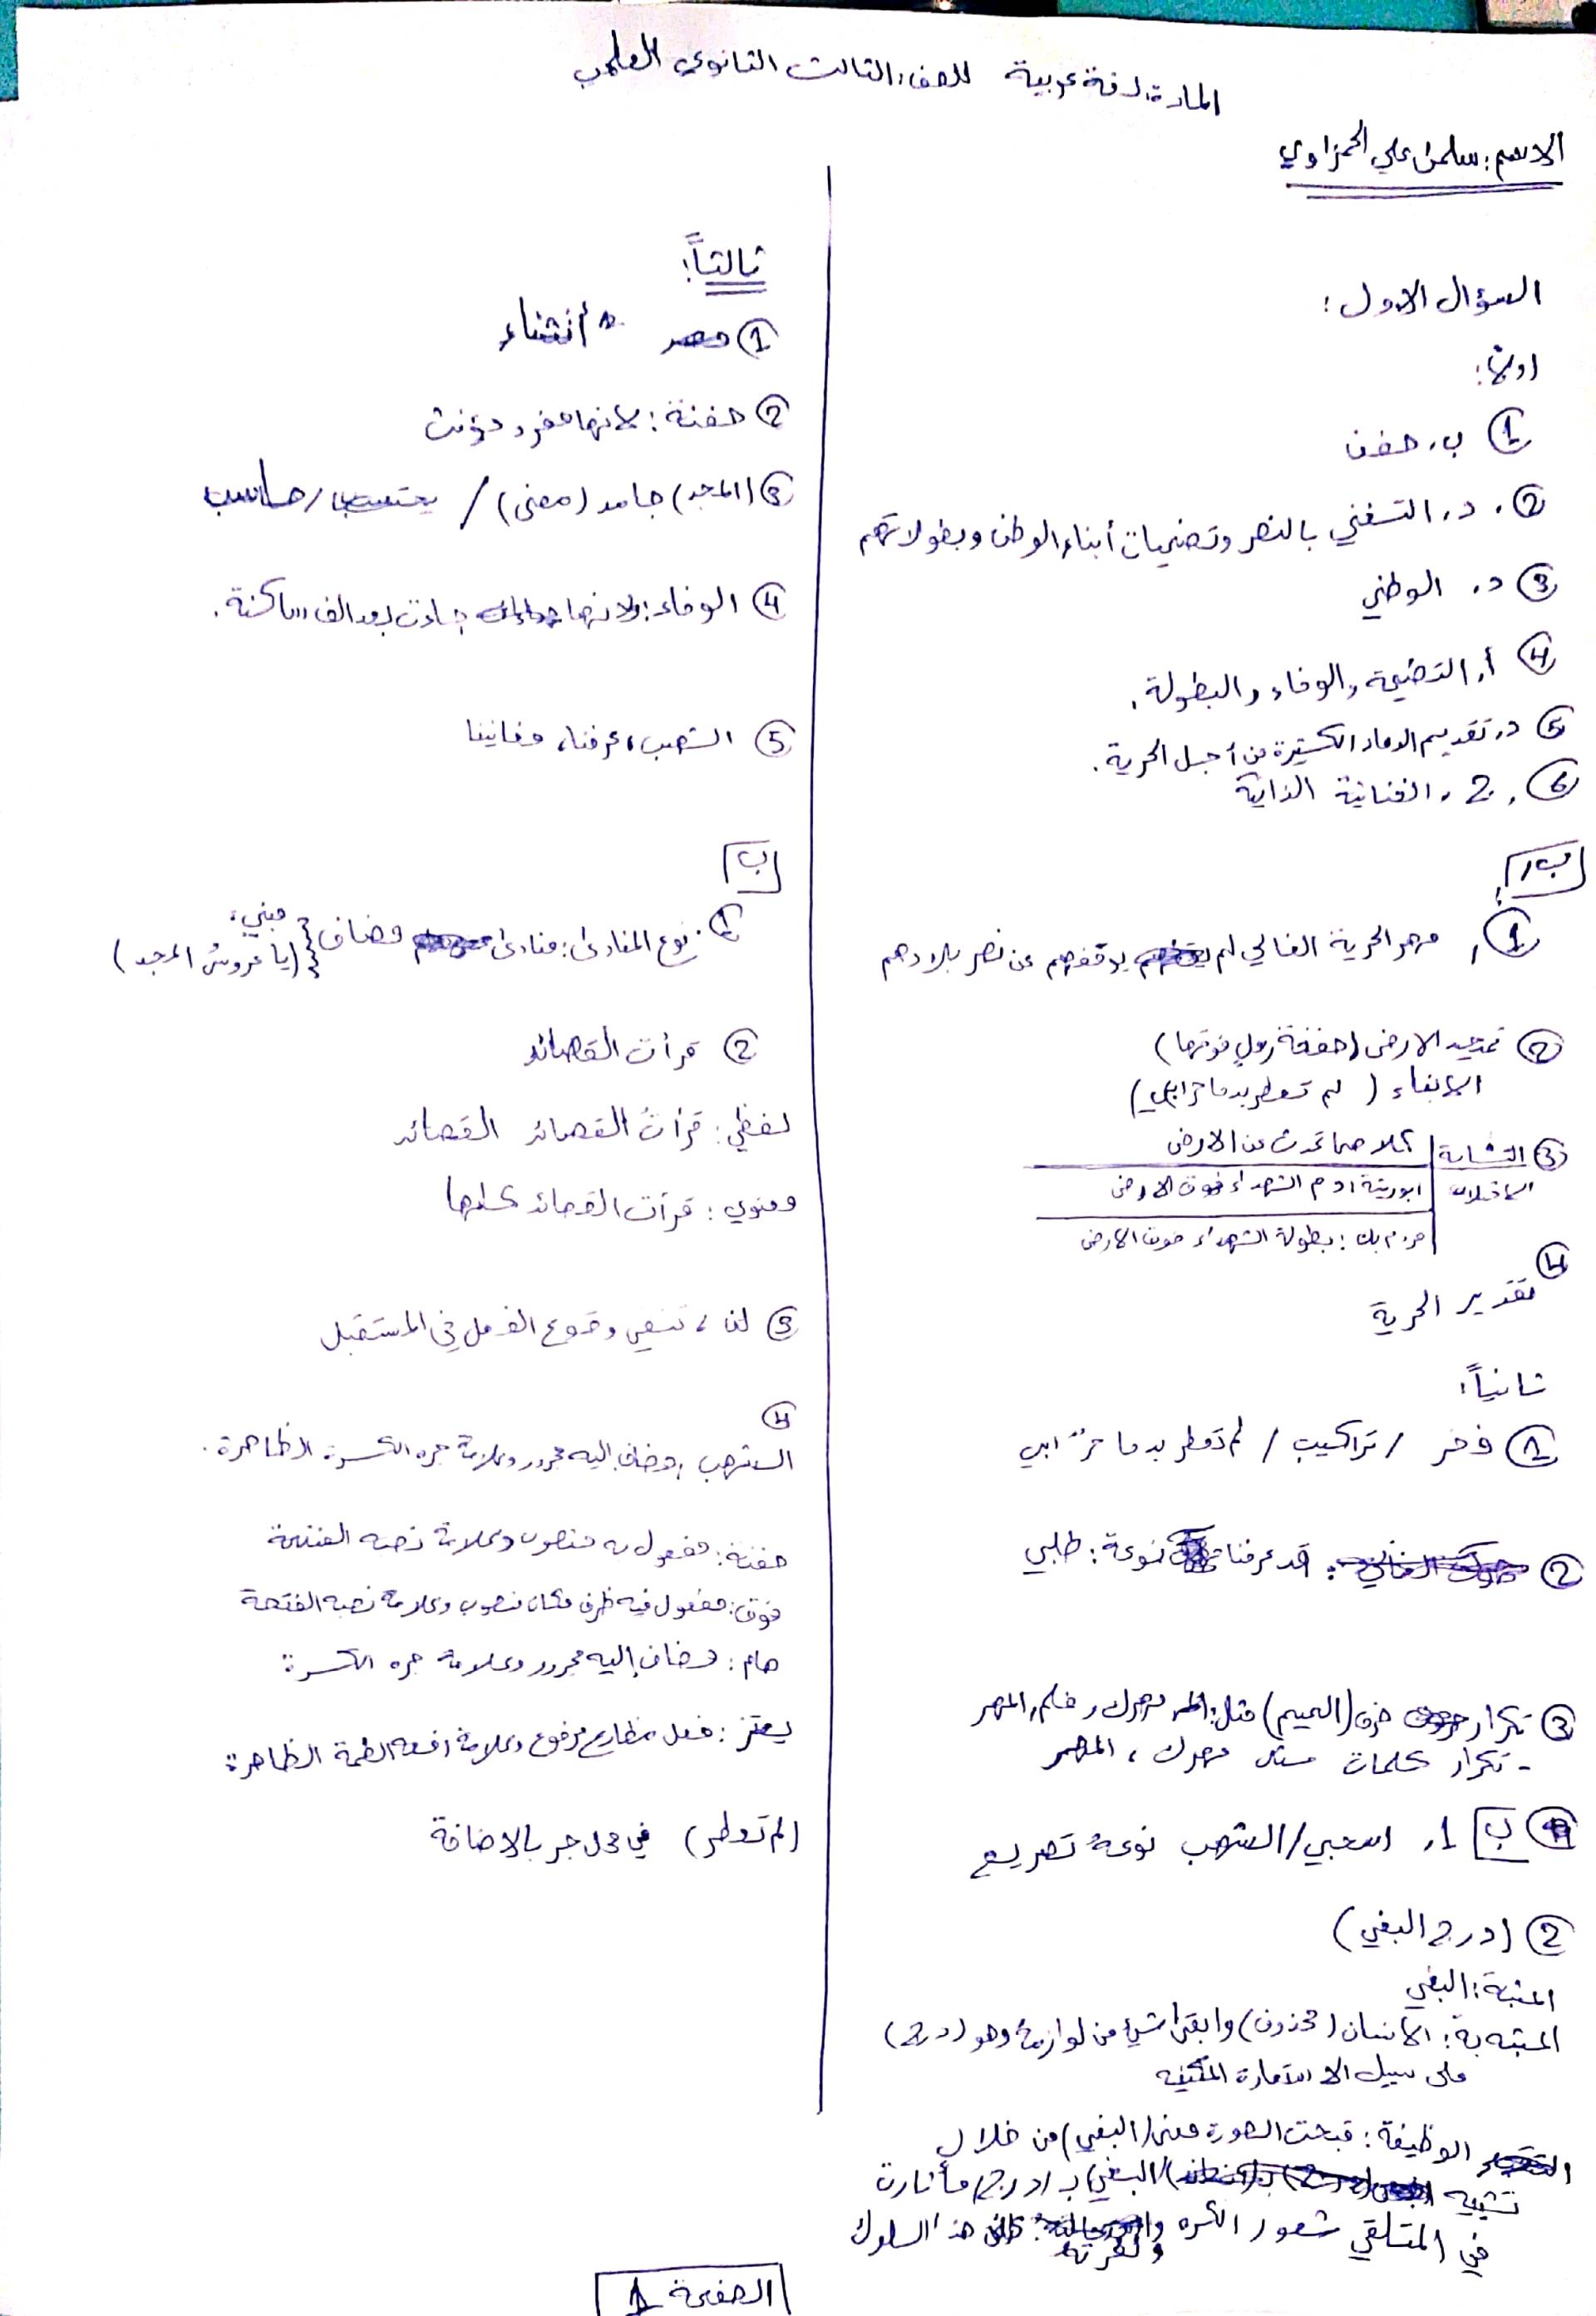 المادة: لغة عربية للصف: الثالث الثانوي العلمي
الاسم: سلمى علي الحمزاوي
السؤال الاول:
اولاً:
1 ب. حفن
2. د. التغني بالنصر وتضحيات أبناء الوطن وبطولاتهم
3 د. الوطني
4 أ. التضحية والوفاء والبطولة.
5 د. تقديم الدماء الكثيرة من أجل الحرية.
6. 2. الغنائية الذاتية
ب.
1. مهر الحرية الغالي لم يوقفهم عن نصر بلادهم
2 تمجيد الارض (حفنة رملٍ فوقها)
الاباء ( لم تعطر بدما حر أبي)
3 التشابه كلاهما تحدث عن الارض
الاختلاف ابو ريشة: دم الشهداء فوق الارض
مردم بك: بطولة الشهداء فوق الارض
4
تقدير الحرية
ثانياً:
1 فخر / تراكيب / لم تعطر بدما حرّ ابي
2 قد عرفنا نوعه: طلبي
3 تكرار حرف (الميم) مثل: مهرك, فلم, المهر
- تكرار كلمات مثل مهرك، المهر
ب 1. اسحبي/الشهب نوعهُ تصريع
2 (درج البغي)
المشبه: البغي
المشبه به: الانسان (محذوف) وابقى شيء من لوازمه وهو (درج)
على سبيل الاستعارة المكنية
الوظيفة: قبحت الصورة معنى (البغي) من خلال
تشبيه (البغي) بـ ادرج فأثارت
في المتلقي شعور الكره ونفرته هذا السلوك
ثالثاً:
1 أنشاء
2 حفنة: لانها مفرد مؤنث
3 (المجد) جامد (معنى) / حاسب
4 الوفاء: لانها جاءت بعد الف ساكنة.
5 الشهب، عرفنا، مغانينا
ب
1. نوع المنادى: منادى مضاف (يا عروسُ المجد)
2 قرأت القصائد
لفظي: قرأتُ القصائد القصائد
معنوي: قرأت القصائد كلها
3 لن، تنفي وقوع الفعل في المستقبل
4
الشهب: مضاف إليه مجرور وعلامة جره الكسرة الظاهرة.
حفنة: مفعول به منصوب وعلامة نصبه الفتحة
فوق: مفعول فيه ظرف مكان منصوب وعلامة نصبه الفتحة
هام: مضاف إليه مجرور وعلامة جره الكسرة
يعتز: فعل مظارع مرفوع وعلامة رفعه الظمة الظاهرة
(لم تعطر) في محل جر بالاضافة
الصفحة 1